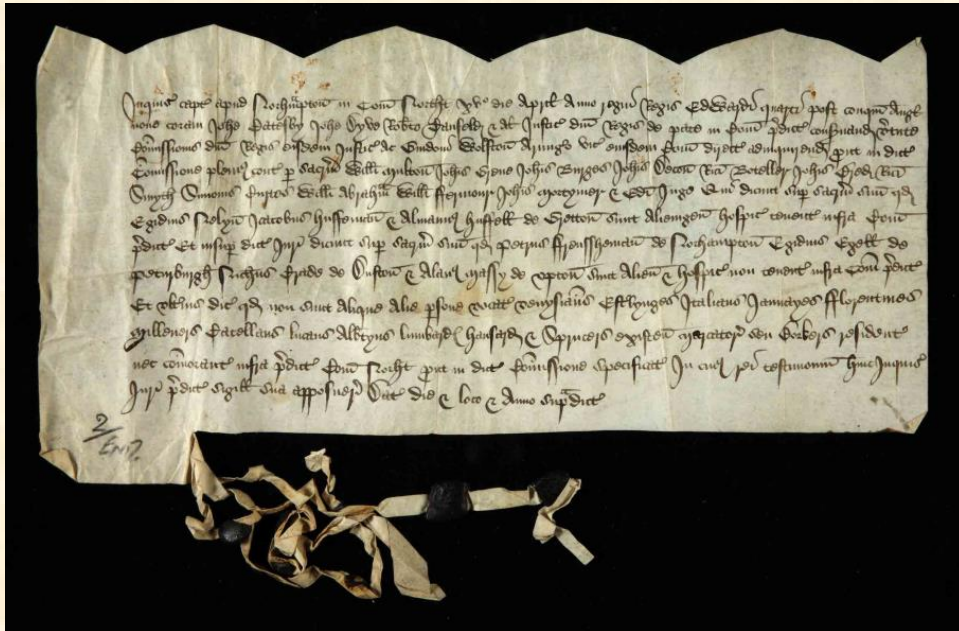 Inquis capt apud Norhmpton in Com Norht xv die April Anno regni Regis Edwardi quarti post conqm Angl
nono coram Johe Catesby Johe Dyve Robto Tanfeld & al Justic dni Regis de pace in Com pdict conservand virtute
Comissionis dni Regis eisdem Justic ac vic eiusdem Com direct ad inquirend put in dict
Comissione plenius cont p sacrm Willi Johis Grene Johis Burges Johis Ric Boteller Johis Ric
Smyth Simonis Willi Abraham Willi ffermour Johis Mortymer & Inge Qui dicunt sup sacrm suu qd
Egidius Jacobus & Almanus de Gretton sunt Alienigen hospic tenent infra Com
pdict Et insup dict Jur dicunt sup sacrm suu qd Petrus ffrensheman de Norhampton Egidius de
Petirburgh Nichus de & Alanus Massy de Upton sunt Alien & hospic non tenent infra Com pdict
Et ulterius dic qd non sunt Alique Alie psone vocat Venysians Esterlynges Italians Januayes fflorentines
Milleners Catellans Lucans Albtyns Lumbard Hansard & Sprucers existen mercator seu resident
nec comorant infra pdict Com Norht put in dict Comissione specificat In cuius rei testimonium huic Inquis
Jur pdict sigill sua apposuer Dat die & loco & Anno supdict
2/